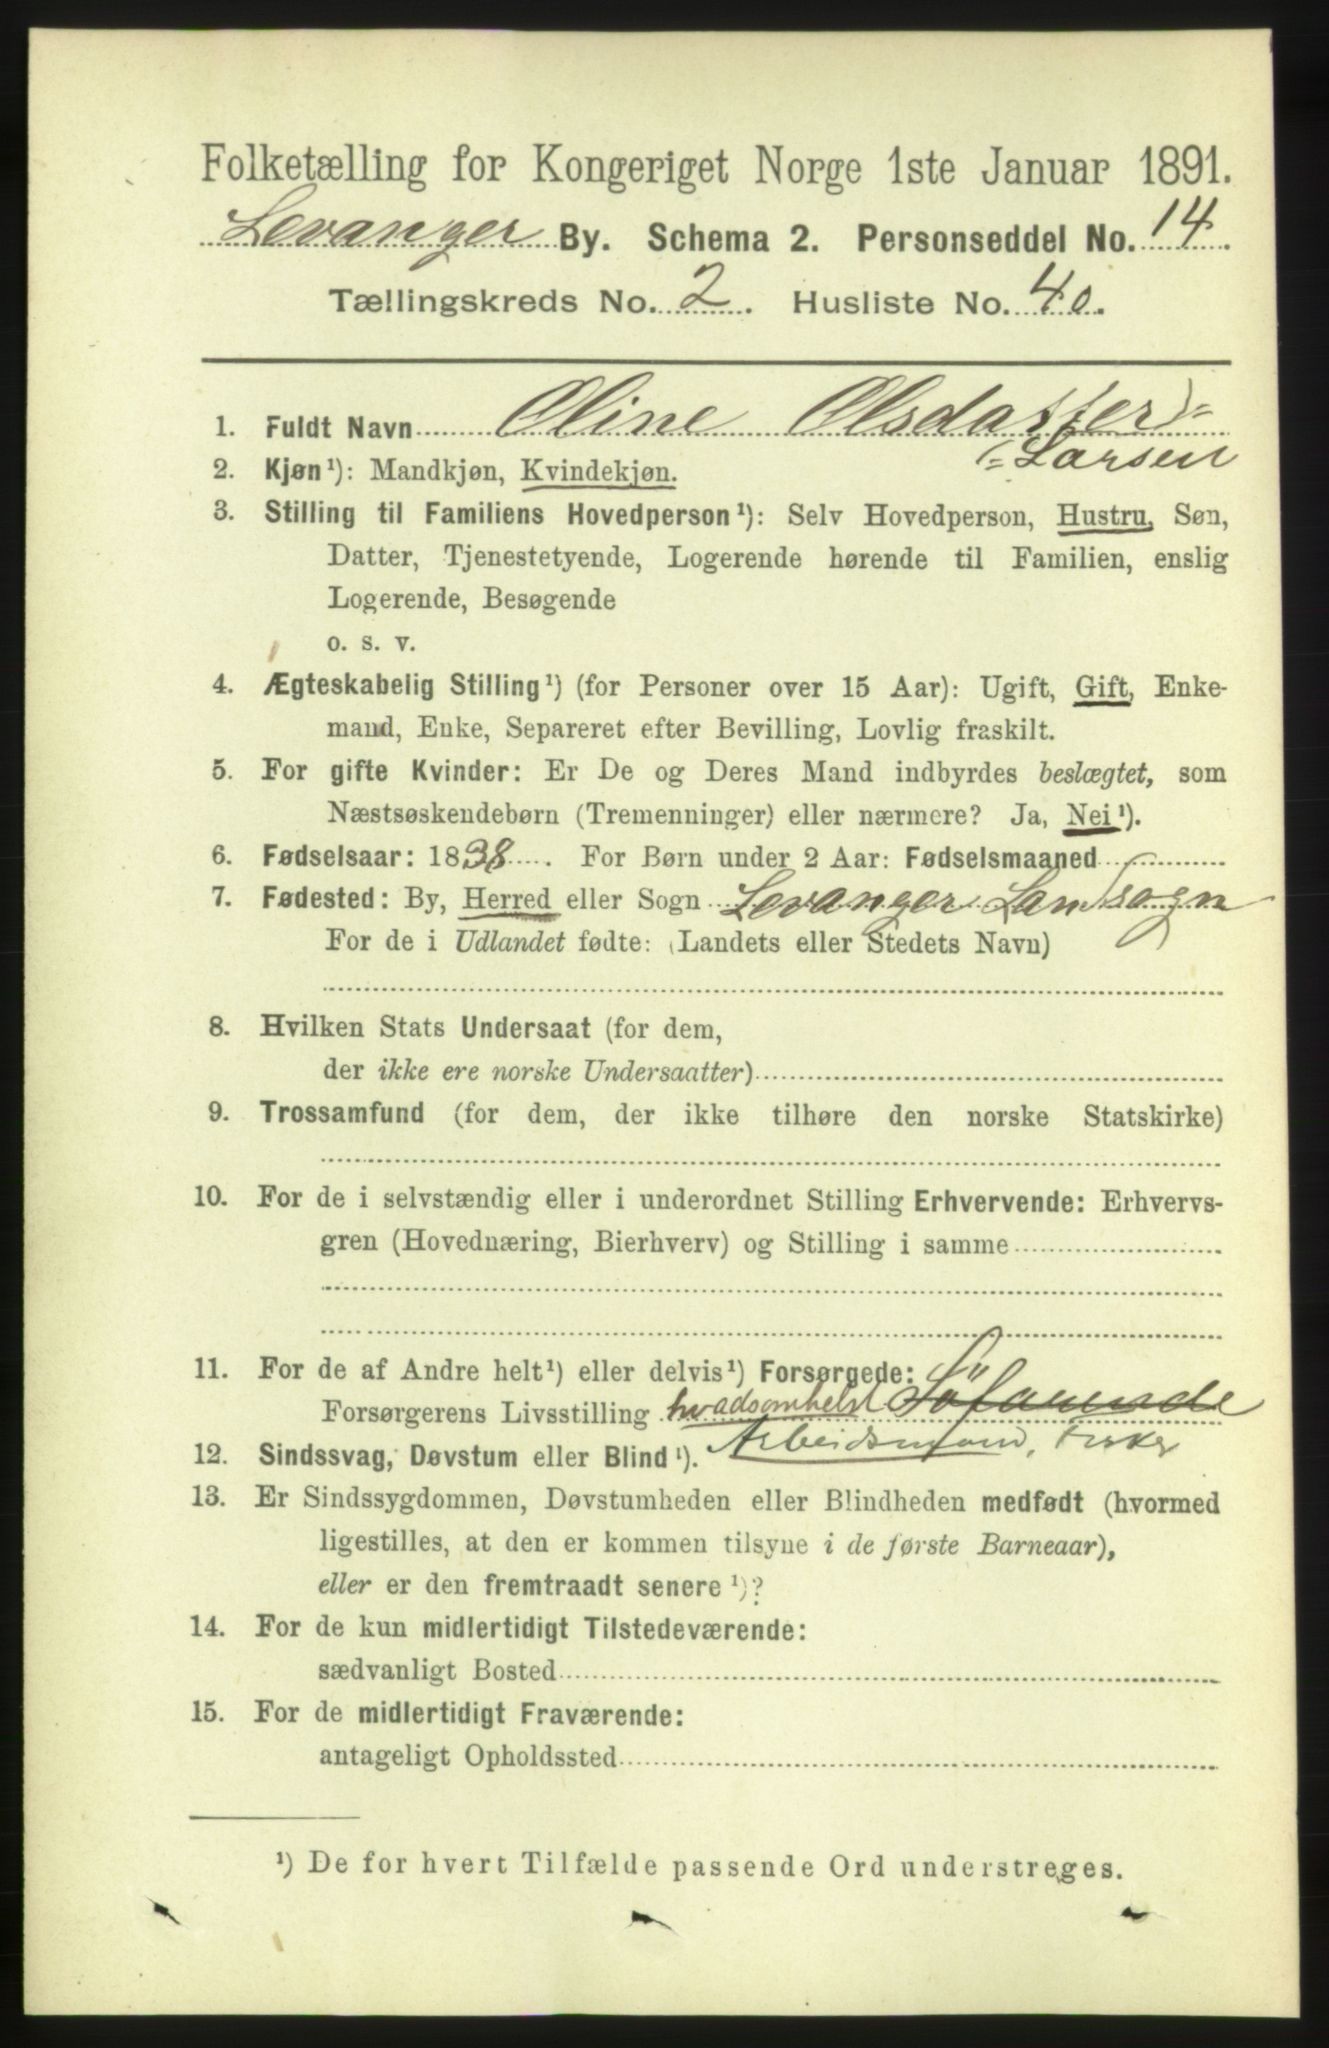 Folketælling for Kongeriget Norge 1ste Januar 1891.
Levanger By. Schema 2. Personseddel No. 14.
Tællingskreds No. 2. Husliste No. 40.
1. Fuldt Navn Oline Olsdatter
(= Larsen
2. Kjøn¹): Mandkjøn, Kvindekjøn.
3. Stilling til Familiens Hovedperson¹): Selv Hovedperson, Hustru, Søn,
Datter, Tjenestetyende, Logerende hørende til Familien, enslig
Logerende, Besøgende
o. s. v.
4. Ægteskabelig Stilling¹) (for Personer over 15 Aar): Ugift, Gift, Enke-
mand, Enke, Separeret efter Bevilling, Lovlig fraskilt.
5. For gifte Kvinder: Er De og Deres Mand indbyrdes beslægtet, som
Næstsøskendebørn (Tremenninger) eller nærmere? Ja, Nei¹).
6. Fødselsaar: 1838. For Børn under 2 Aar: Fødselsmaaned
7. Fødested: By, Herred eller Sogn Levanger Landsogn
For de i Udlandet fødte: (Landets eller Stedets Navn)
8. Hvilken Stats Undersaat (for dem,
der ikke ere norske Undersaatter)
9. Trossamfund (for dem, der ikke tilhøre den norske Statskirke)
10. For de i selvstændig eller i underordnet Stilling Erhvervende: Erhvervs-
gren (Hovednæring, Bierhverv) og Stilling i samme
11. For de af Andre helt¹) eller delvis¹) Forsørgede:
Forsørgerens Livsstilling hvadsomhelst Söfarende
Arbeidsmand, Fisker
12. Sindssvag, Døvstum eller Blind¹).
13. Er Sindssygdommen, Døvstumheden eller Blindheden medfødt (hvormed
ligestilles, at den er kommen tilsyne i de første Barneaar),
eller er den fremtraadt senere¹)?
14. For de kun midlertidigt Tilstedeværende:
sædvanligt Bosted
15. For de midlertidigt Fraværende:
antageligt Opholdssted
¹) De for hvert Tilfælde passende Ord understreges.